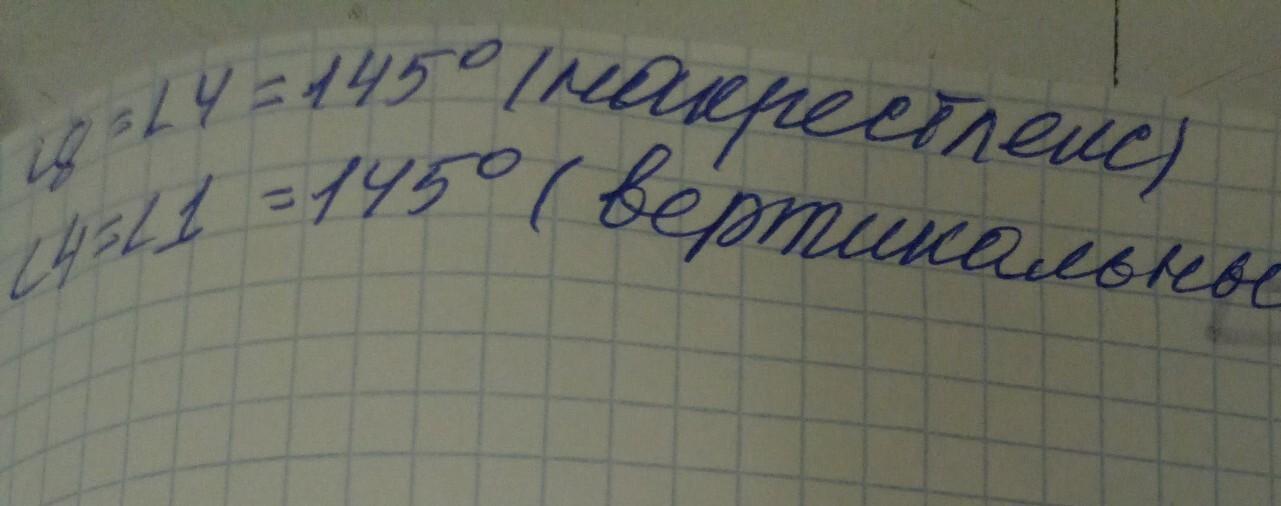 ∠8=∠4=145° (накрестлеис)
∠4=∠1=145° (вертикальные